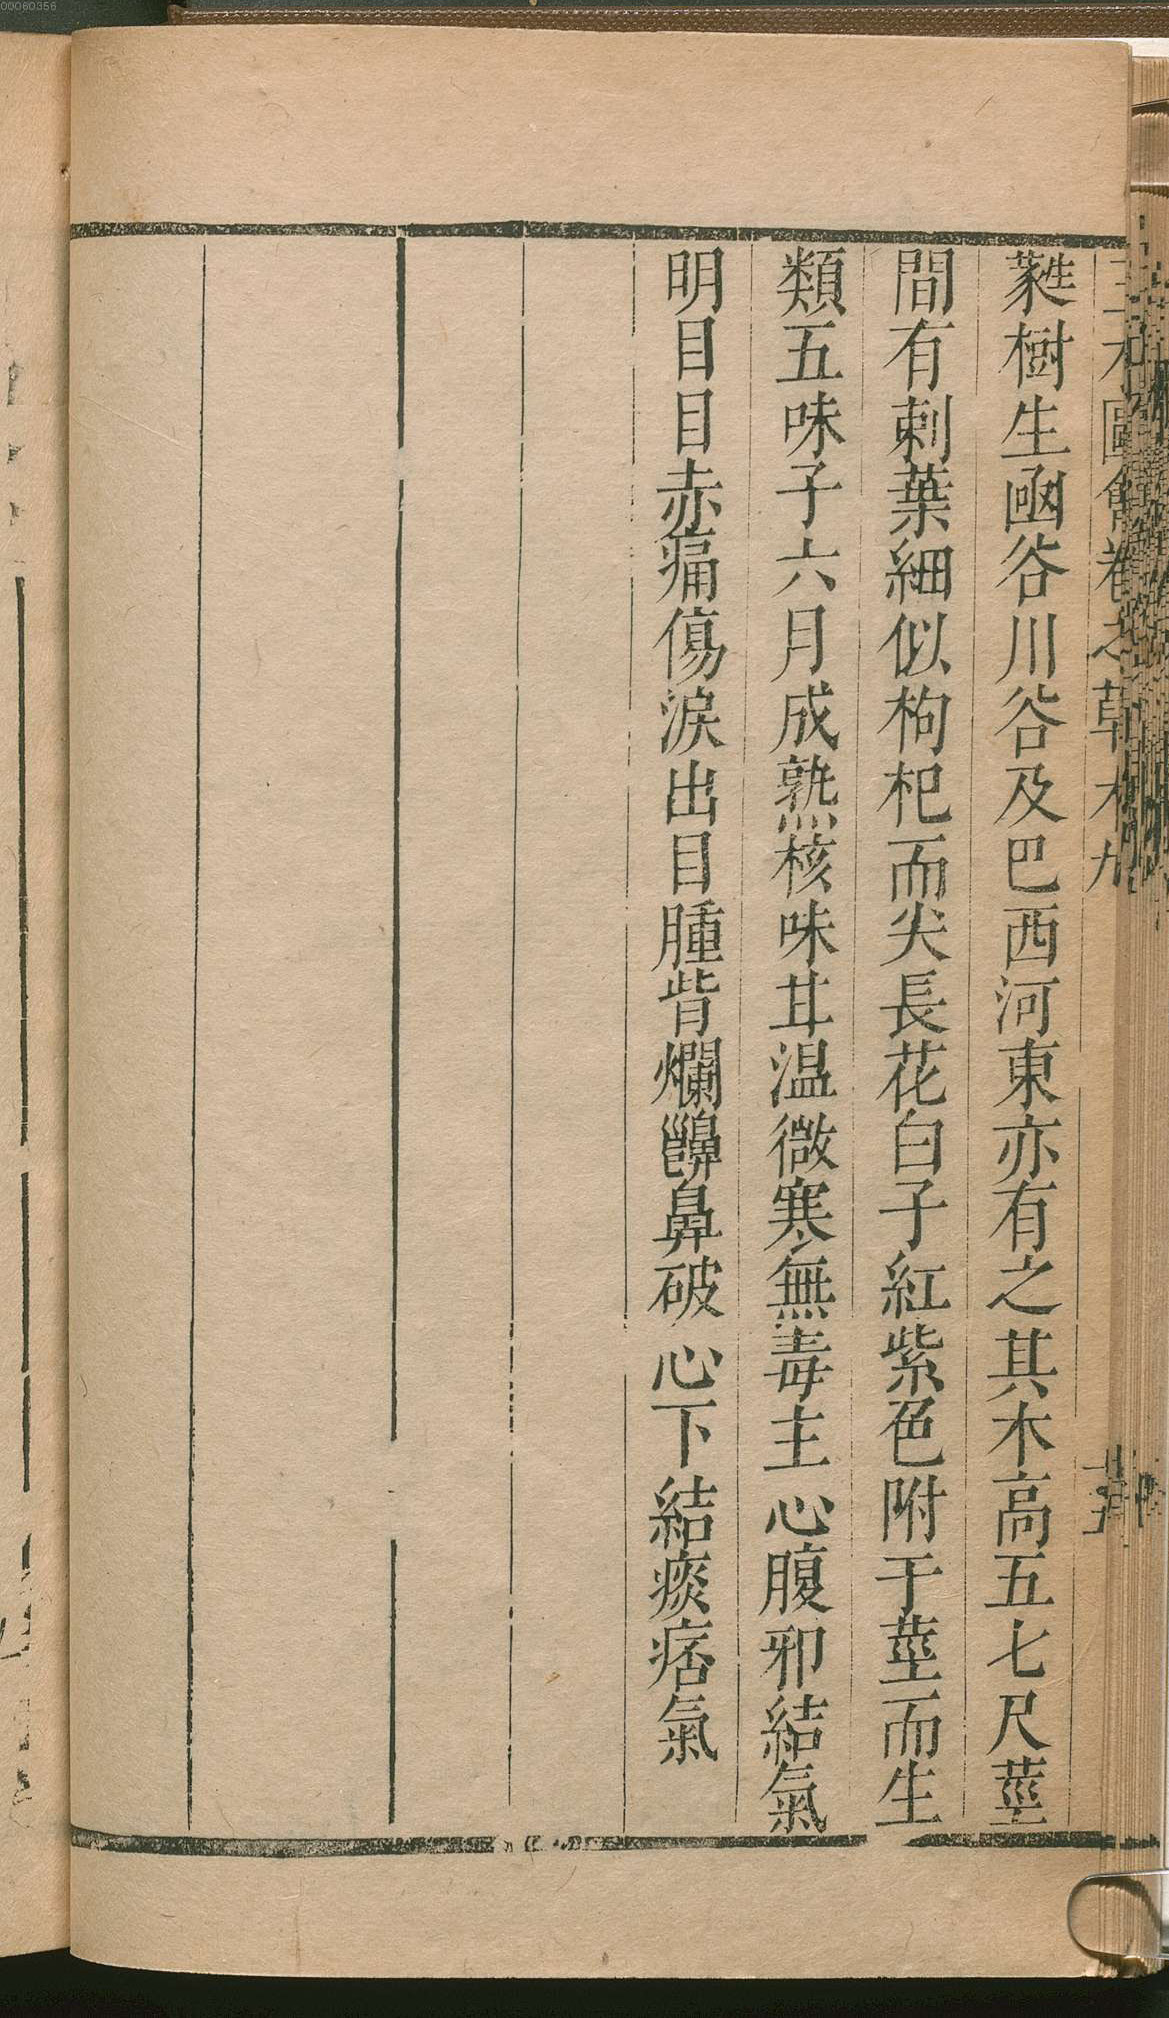 三才圖會卷之草木九
蕤樹生凾谷川谷及巴西河東亦有之其木高五七尺莖
間有刺葉細似枸杞而尖長花白子紅紫色附于莖而生
類五味子六月成熟核味甘温微寒無毒主心腹邪結氣
明目目赤痛傷淚出目腫眥爛齆鼻破心下結痰痞氣
00060356